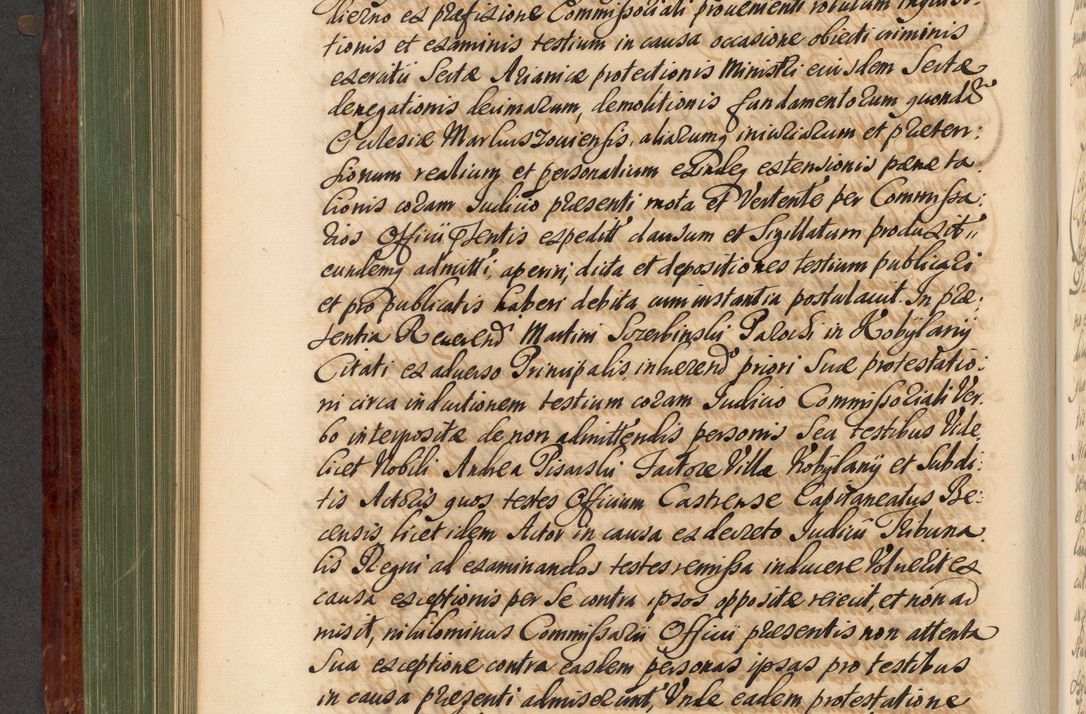 dierno ex præfixione Commissoriali provementi rotulum inquisi-
tionis et examinis testium in causa occasione obiecti criminis
exeratij Sectæ Arianicæ protectionis Ministri eiusdem Sectæ
denegationis decimarum, demolitionis fundamentorum quond
Ecclesiæ Marhuszoviensis, aliarumq iniuriarum et præten:
sionum realium et personalium exindeq extensionis pænæ ta
lionis coram Judicio præsenti mota et Vertente per Commissa:
rios Officii Psentis expeditt clausum et Sigillatum produxit ii
eundemq admitti, aperiri, dicta et depositiones testium publicari
et pro publicatis haberi debita cum instantia postulavit. In præ:
sentia Reverend Martini Szczerbinski Parochi in Kobylany
Citati ex adverso Principalis, inhærend priori Suæ protestatio:
ni circa inductionem testium coram Judicio Commissoriali Ver
bo interpositæ de non admittendis personis Seu testibus Vide
licet Nobili Andrea Pisarski Factore Villæ Kobylany et Subdi:
tis Actoris quos testes Officium Castrense Capitaneatus Be:
censis licet idem Actor in causa ex decreto Judicii Tribuna
lis Regni ad examinandos testes remissa inducere Voluerit ex
causa exceptionis per Se contra ipsos oppositæ reiecit, et non ad
misit, nihilominus Commissarii Officii præsentis non attenta
Sua exceptione contra easdem personas ipsas pro testibus
in causa præzenti admiserunt, Unde eadem protestatione